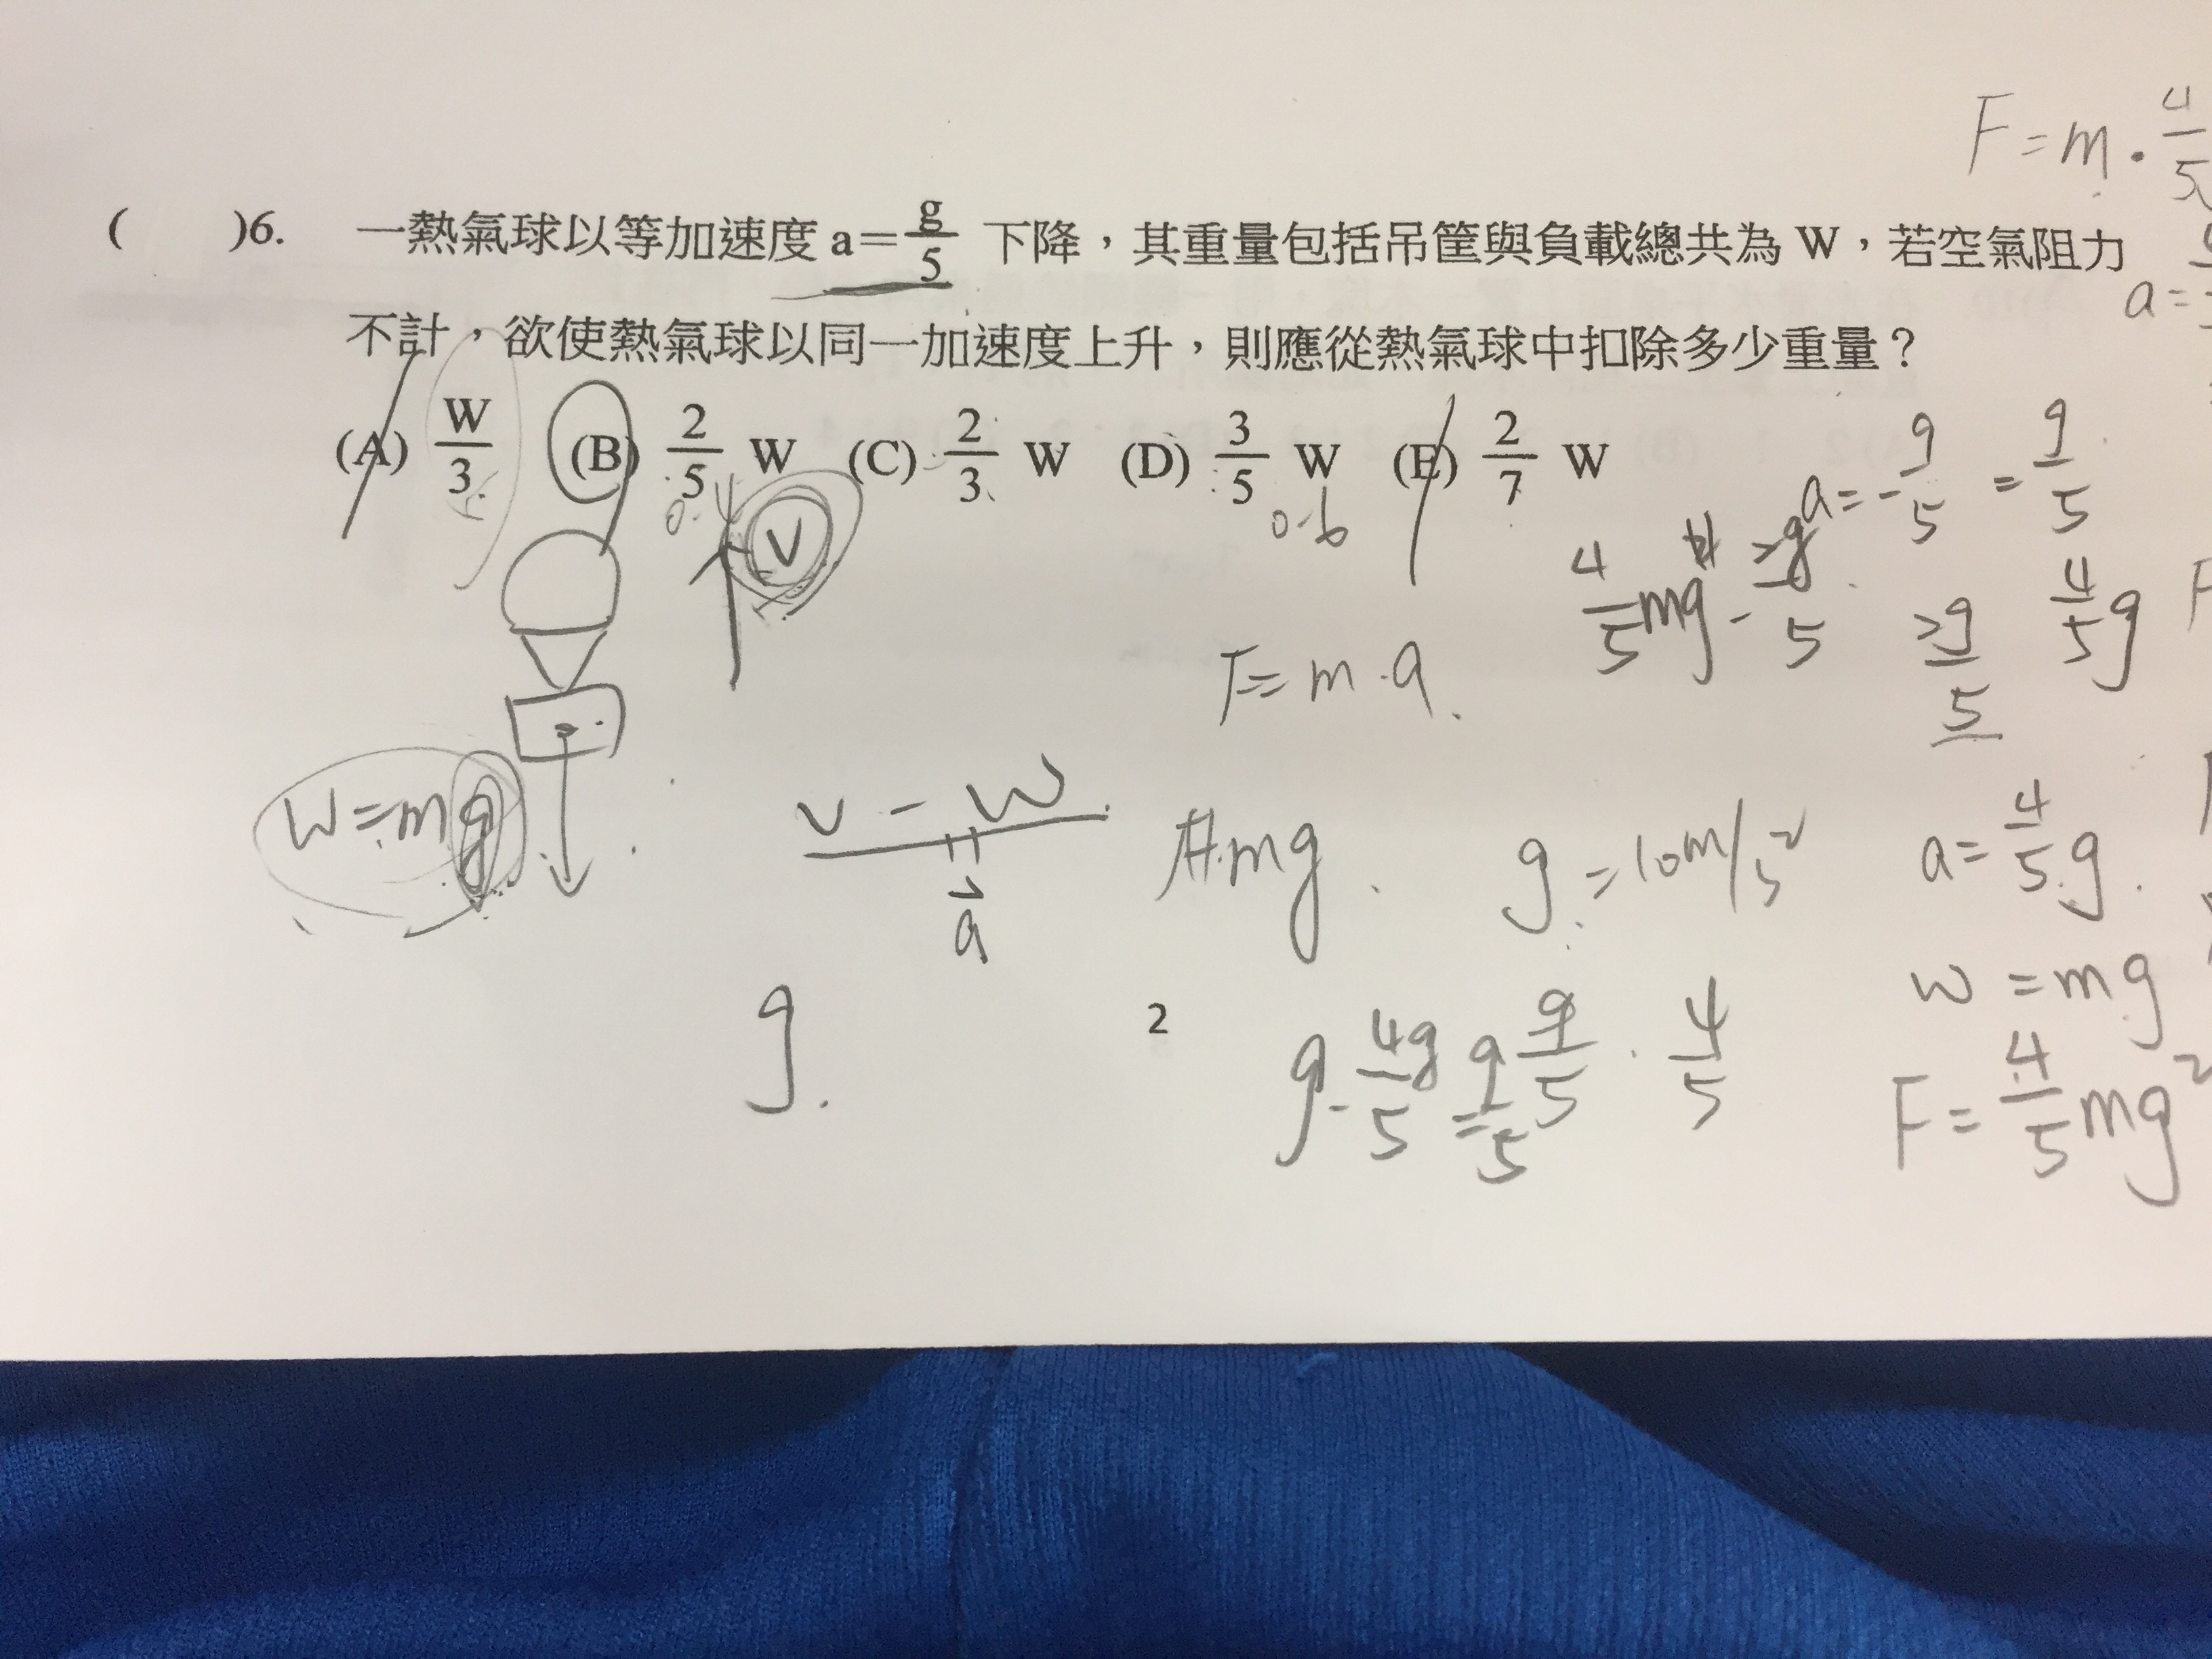 F=m·4/5
( )6. 一熱氣球以等加速度 a=g/5 下降，其重量包括吊筐與負載總共為 W，若空氣阻力
a=
不計，欲使熱氣球以同一加速度上升，則應從熱氣球中扣除多少重量？
(A) W/3 (B) 2/5 W (C) 2/3 W (D) 3/5 W (E) 2/7 W
0.4 0.6
a=-g/5 = g/5
V
4/5 mg - 2g/5
2g/5 4/5 g
F=m·a.
W=mg
V-W
a
mg.
g=10m/s²
a=4/5 g.
w=mg
g.
2
g-4g/5=g/5 g/5 · 4/5
F=4/5 mg²